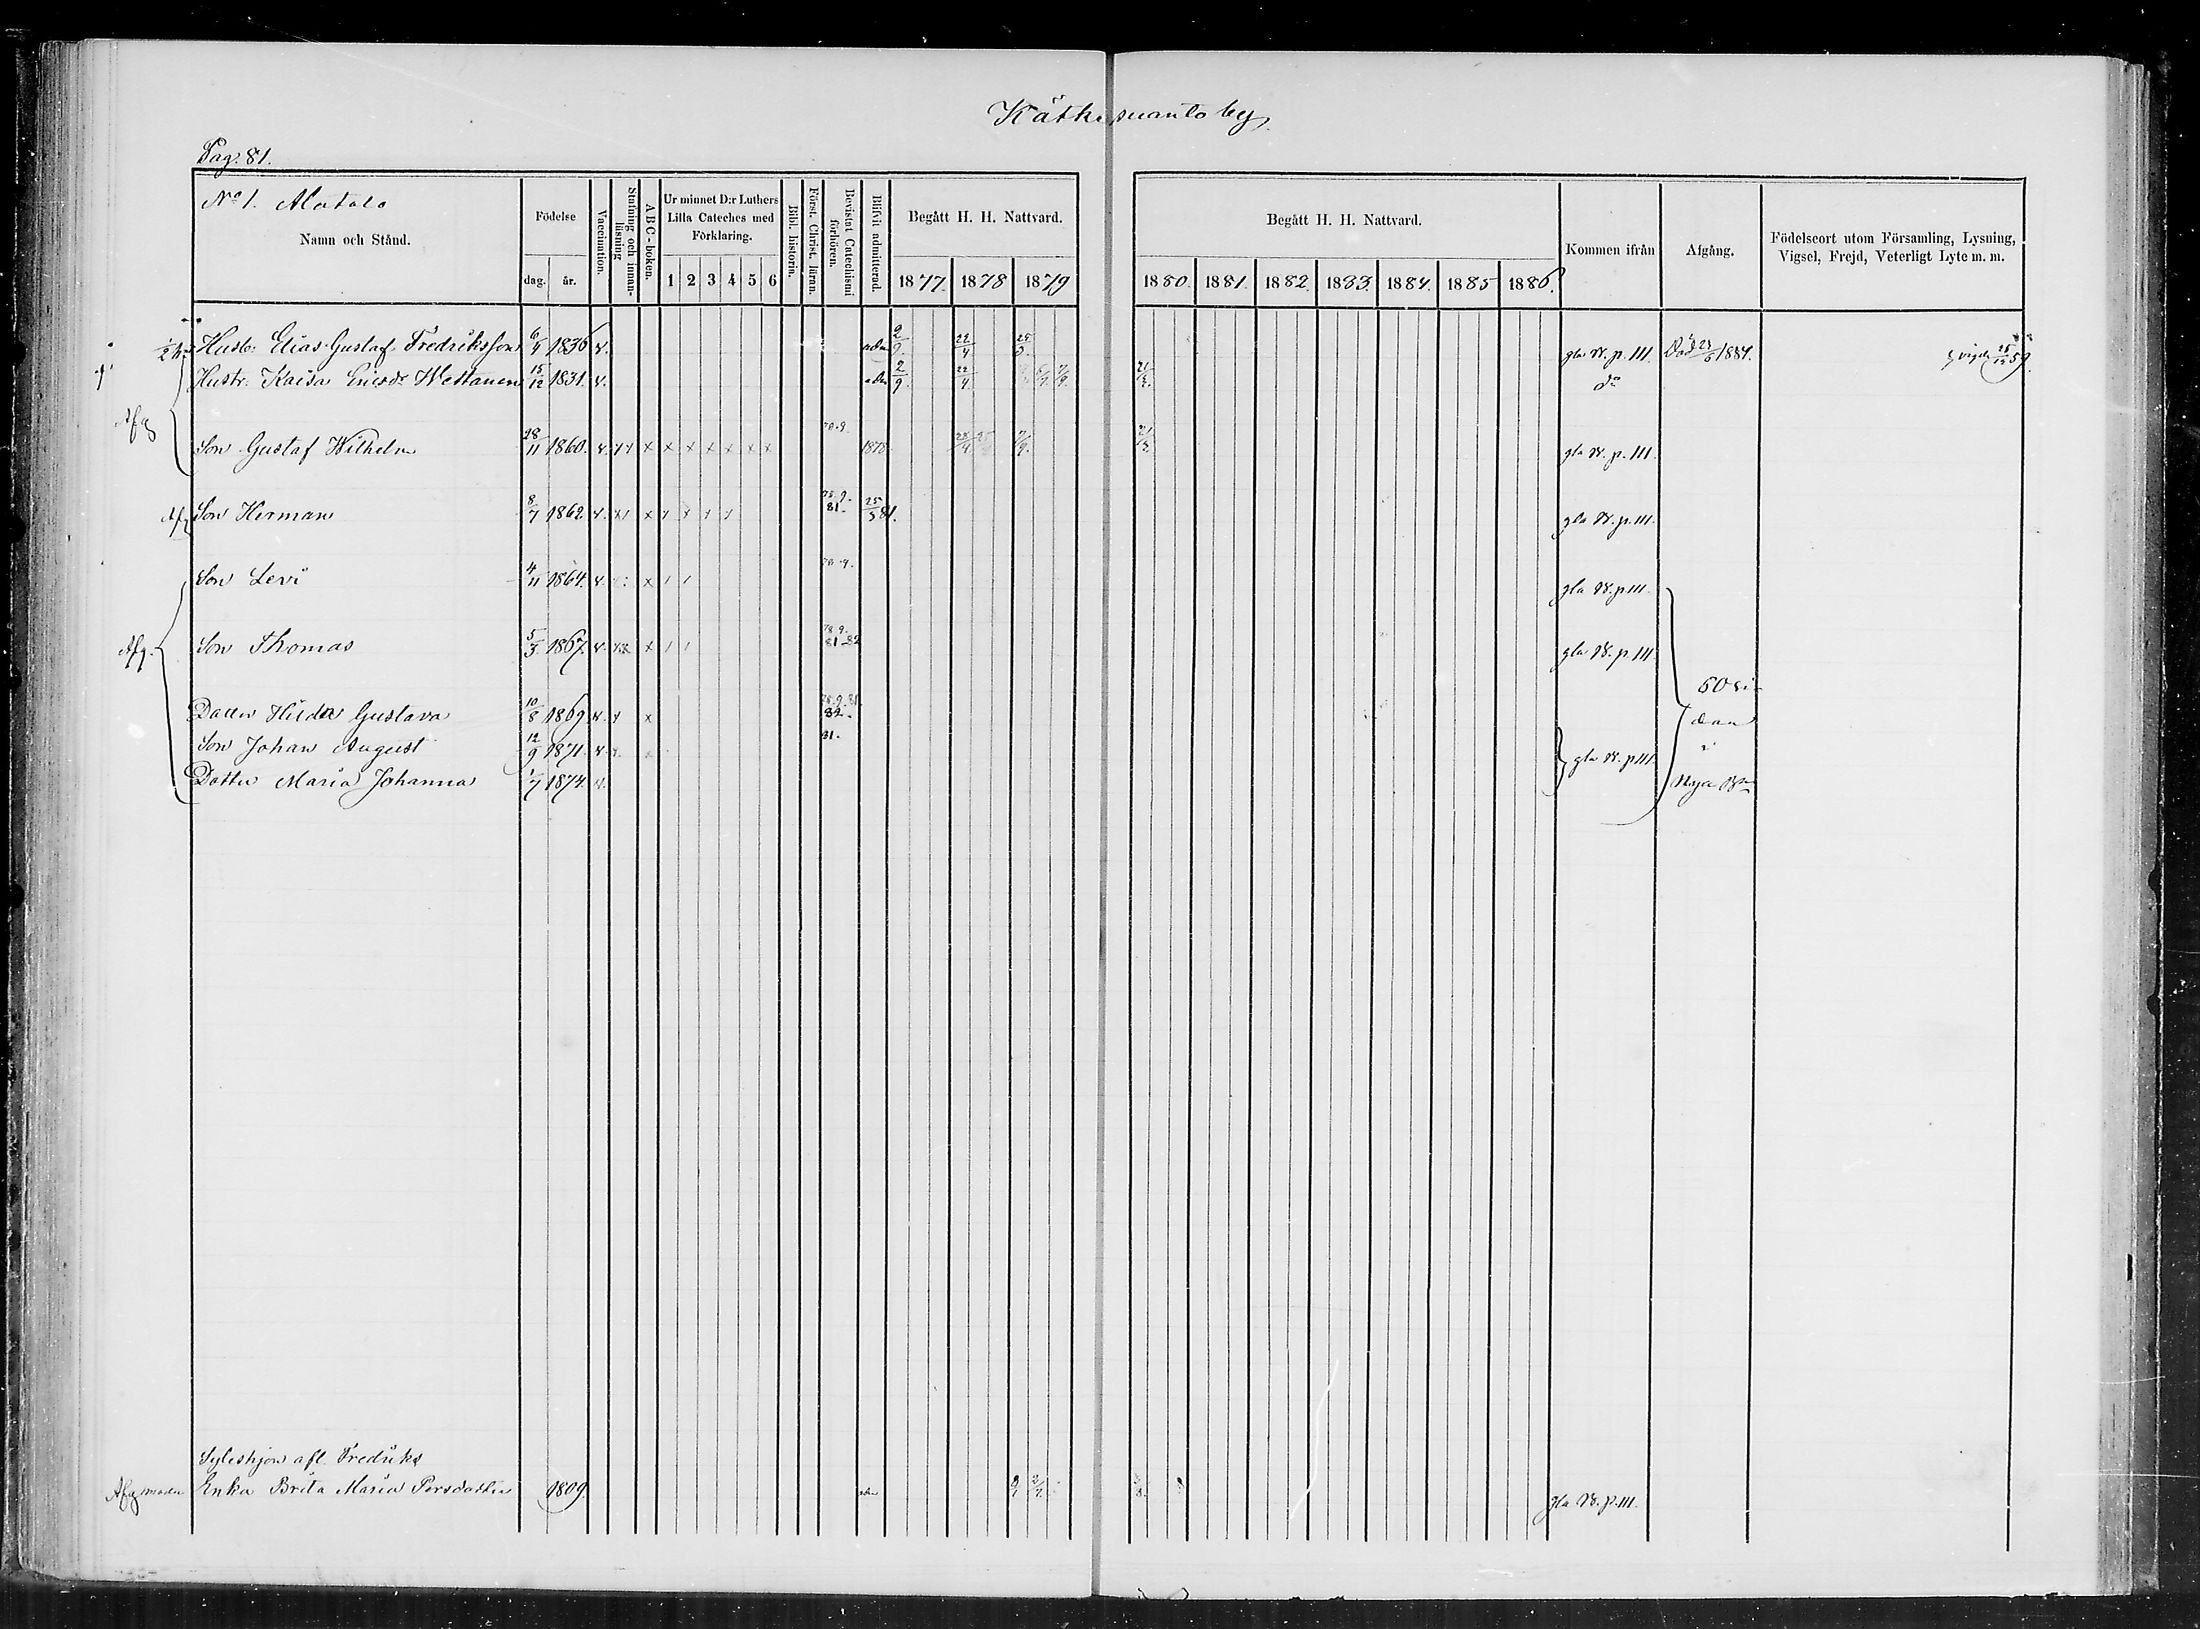 Kätkesuanto by
Pag. 81.
No 1. Alatalo
Namn och Stånd.
Födelse
dag. år.
Vaccination.
Stafning och innanläsning
A B C-boken.
Ur minnet D:r Luthers Lilla Cateches med Förklaring.
1 2 3 4 5 6
Bibl. historia.
Först. Christ. läran.
Bevistat Catechismi förhören.
Blifvit admitterad.
Begått H. H. Nattvard.
1877. 1878 1879
Begått H. H. Nattvard.
1880. 1881. 1882. 1883. 1884. 1885 1886.
Kommen ifrån
Afgång.
Födelseort utom Församling, Lysning, Vigsel, Frejd, Veterligt Lyte m. m.
Husb: Elias Gustaf Fredriksson 6/4 1836 v. 2/9. 22/4 25/3. gla K. p. 111. Död 23/6 1884. vigde 25/12 59.
Hustr. Kaisa Ericsdr Wettanen 15/12 1831. v. 2/9 22/4 21/3. do
Afg
Son Gustaf Wilhelm 28/11 1860. v. x x x x x x x x 78.9. 1878 7/9. 21/3. gla K. p. 111.
Afg Son Herman 8/7 1862 v. x x x x x 78.9. 81. 25/3 81. gla K. p. 111.
Son Levi 4/11 1864. v. x 78.9. gla K. p 111.
Afg. Son Thomas 5/3 1867. v. x 78.9. 81-82 gla K. p 111
60 si-
Dotter Hilda Gustava 10/8 1869. v. x x 78.9.81. 82. dan
Son Johan August 12/9 1871. v. 81. gla K. p 111. i
Dotter Maria Johanna 1/7 1874. v. Nya K
Syleshjon afl. Fredriks
Afg moder Enka Brita Maria Persdotter 1809. gla K. p. 111.